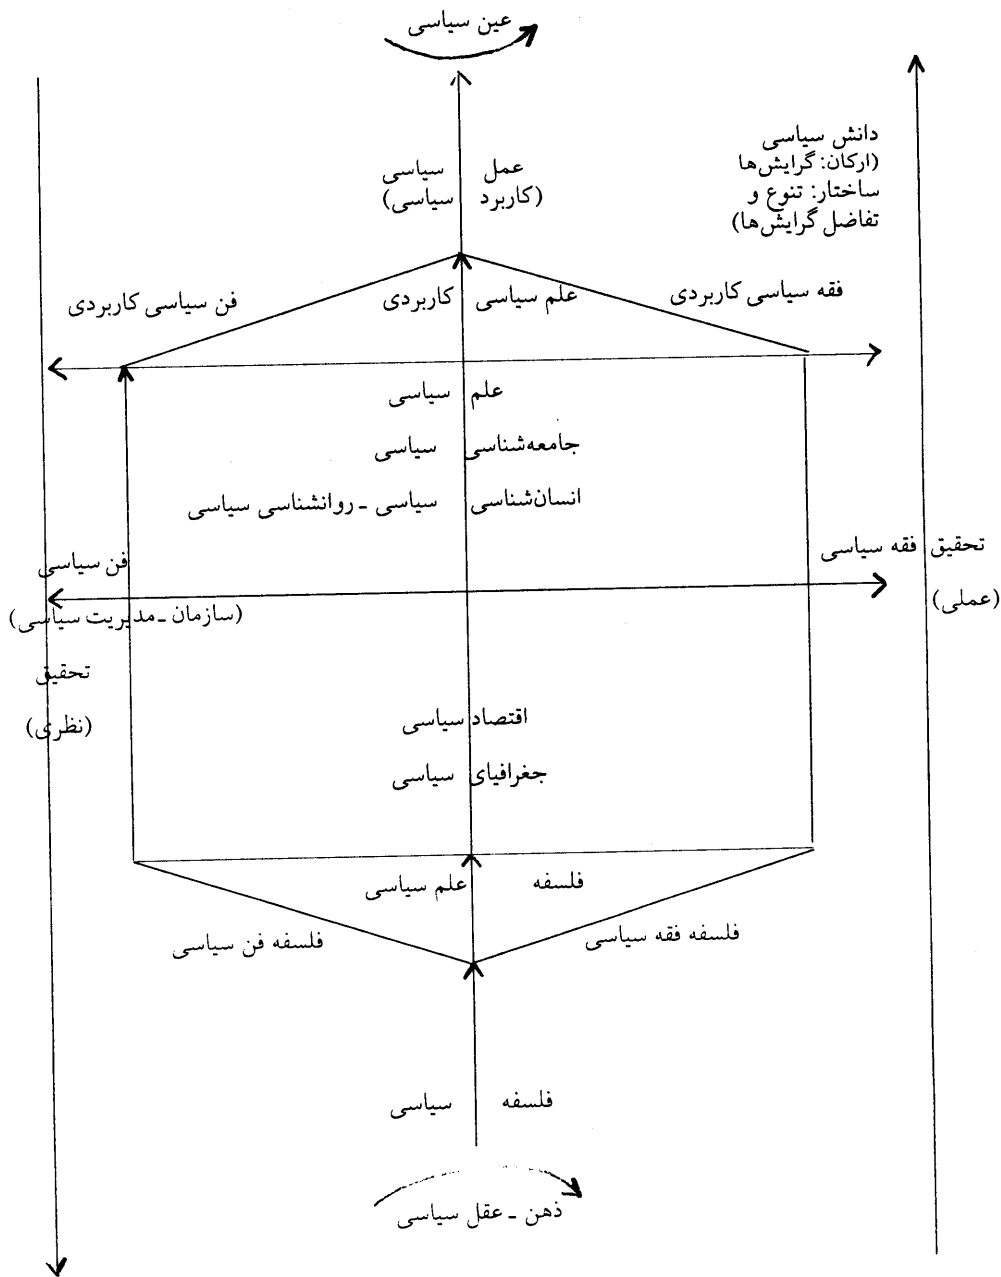 عین سیاسی
دانش سیاسی
(ارکان: گرایش‌ها
ساختار: تنوع و
تفاضل گرایش‌ها)
عمل سیاسی
(کاربرد سیاسی)
فقه سیاسی کاربردی
علم سیاسی کاربردی
فن سیاسی کاربردی
علم سیاسی
جامعه‌شناسی سیاسی
انسان‌شناسی سیاسی ـ روانشناسی سیاسی
تحقیق
(عملی)
فقه سیاسی
فن سیاسی
(سازمان ـ مدیریت سیاسی)
تحقیق
(نظری)
اقتصاد سیاسی
جغرافیای سیاسی
فلسفه علم سیاسی
فلسفه فقه سیاسی
فلسفه فن سیاسی
فلسفه سیاسی
ذهن ـ عقل سیاسی